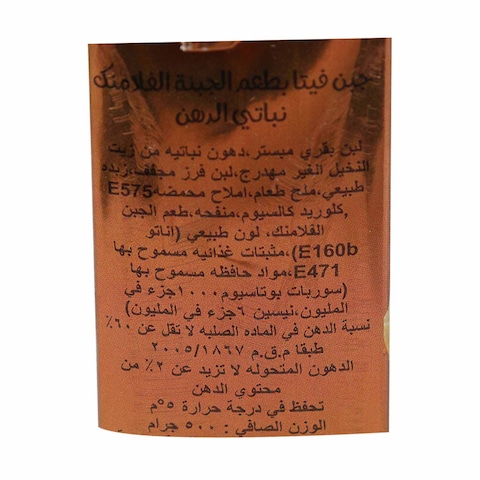 جبن فيتا بطعم الجبنة الفلامنك
نباتي الدهن
لبن بقري مبستر،دهون نباتيه من زيت
النخيل الغير مهدرج،لبن فرز مجفف،زبده
طبيعي،ملح طعام،املاح محمضهE575
,كلوريد كالسيوم،منفحه،طعم الجبن
الفلامنك، لون طبيعي (اناتو
E160b)،مثبتات غذائيه مسموح بها
E471،مواد حافظه مسموح بها
(سوربات بوتاسيوم١٠٠٠جزء في
المليون،نيسين ٦جزء في المليون)
نسبة الدهن في الماده الصلبه لا تقل عن ٦٠٪
طبقا م.ق.م ٢٠٠٥/١٨٦٧
الدهون المتحوله لا تزيد عن ٢٪ من
محتوي الدهن
تحفظ في درجة حرارة ٥°م
الوزن الصافي : ٥٠٠ جرام